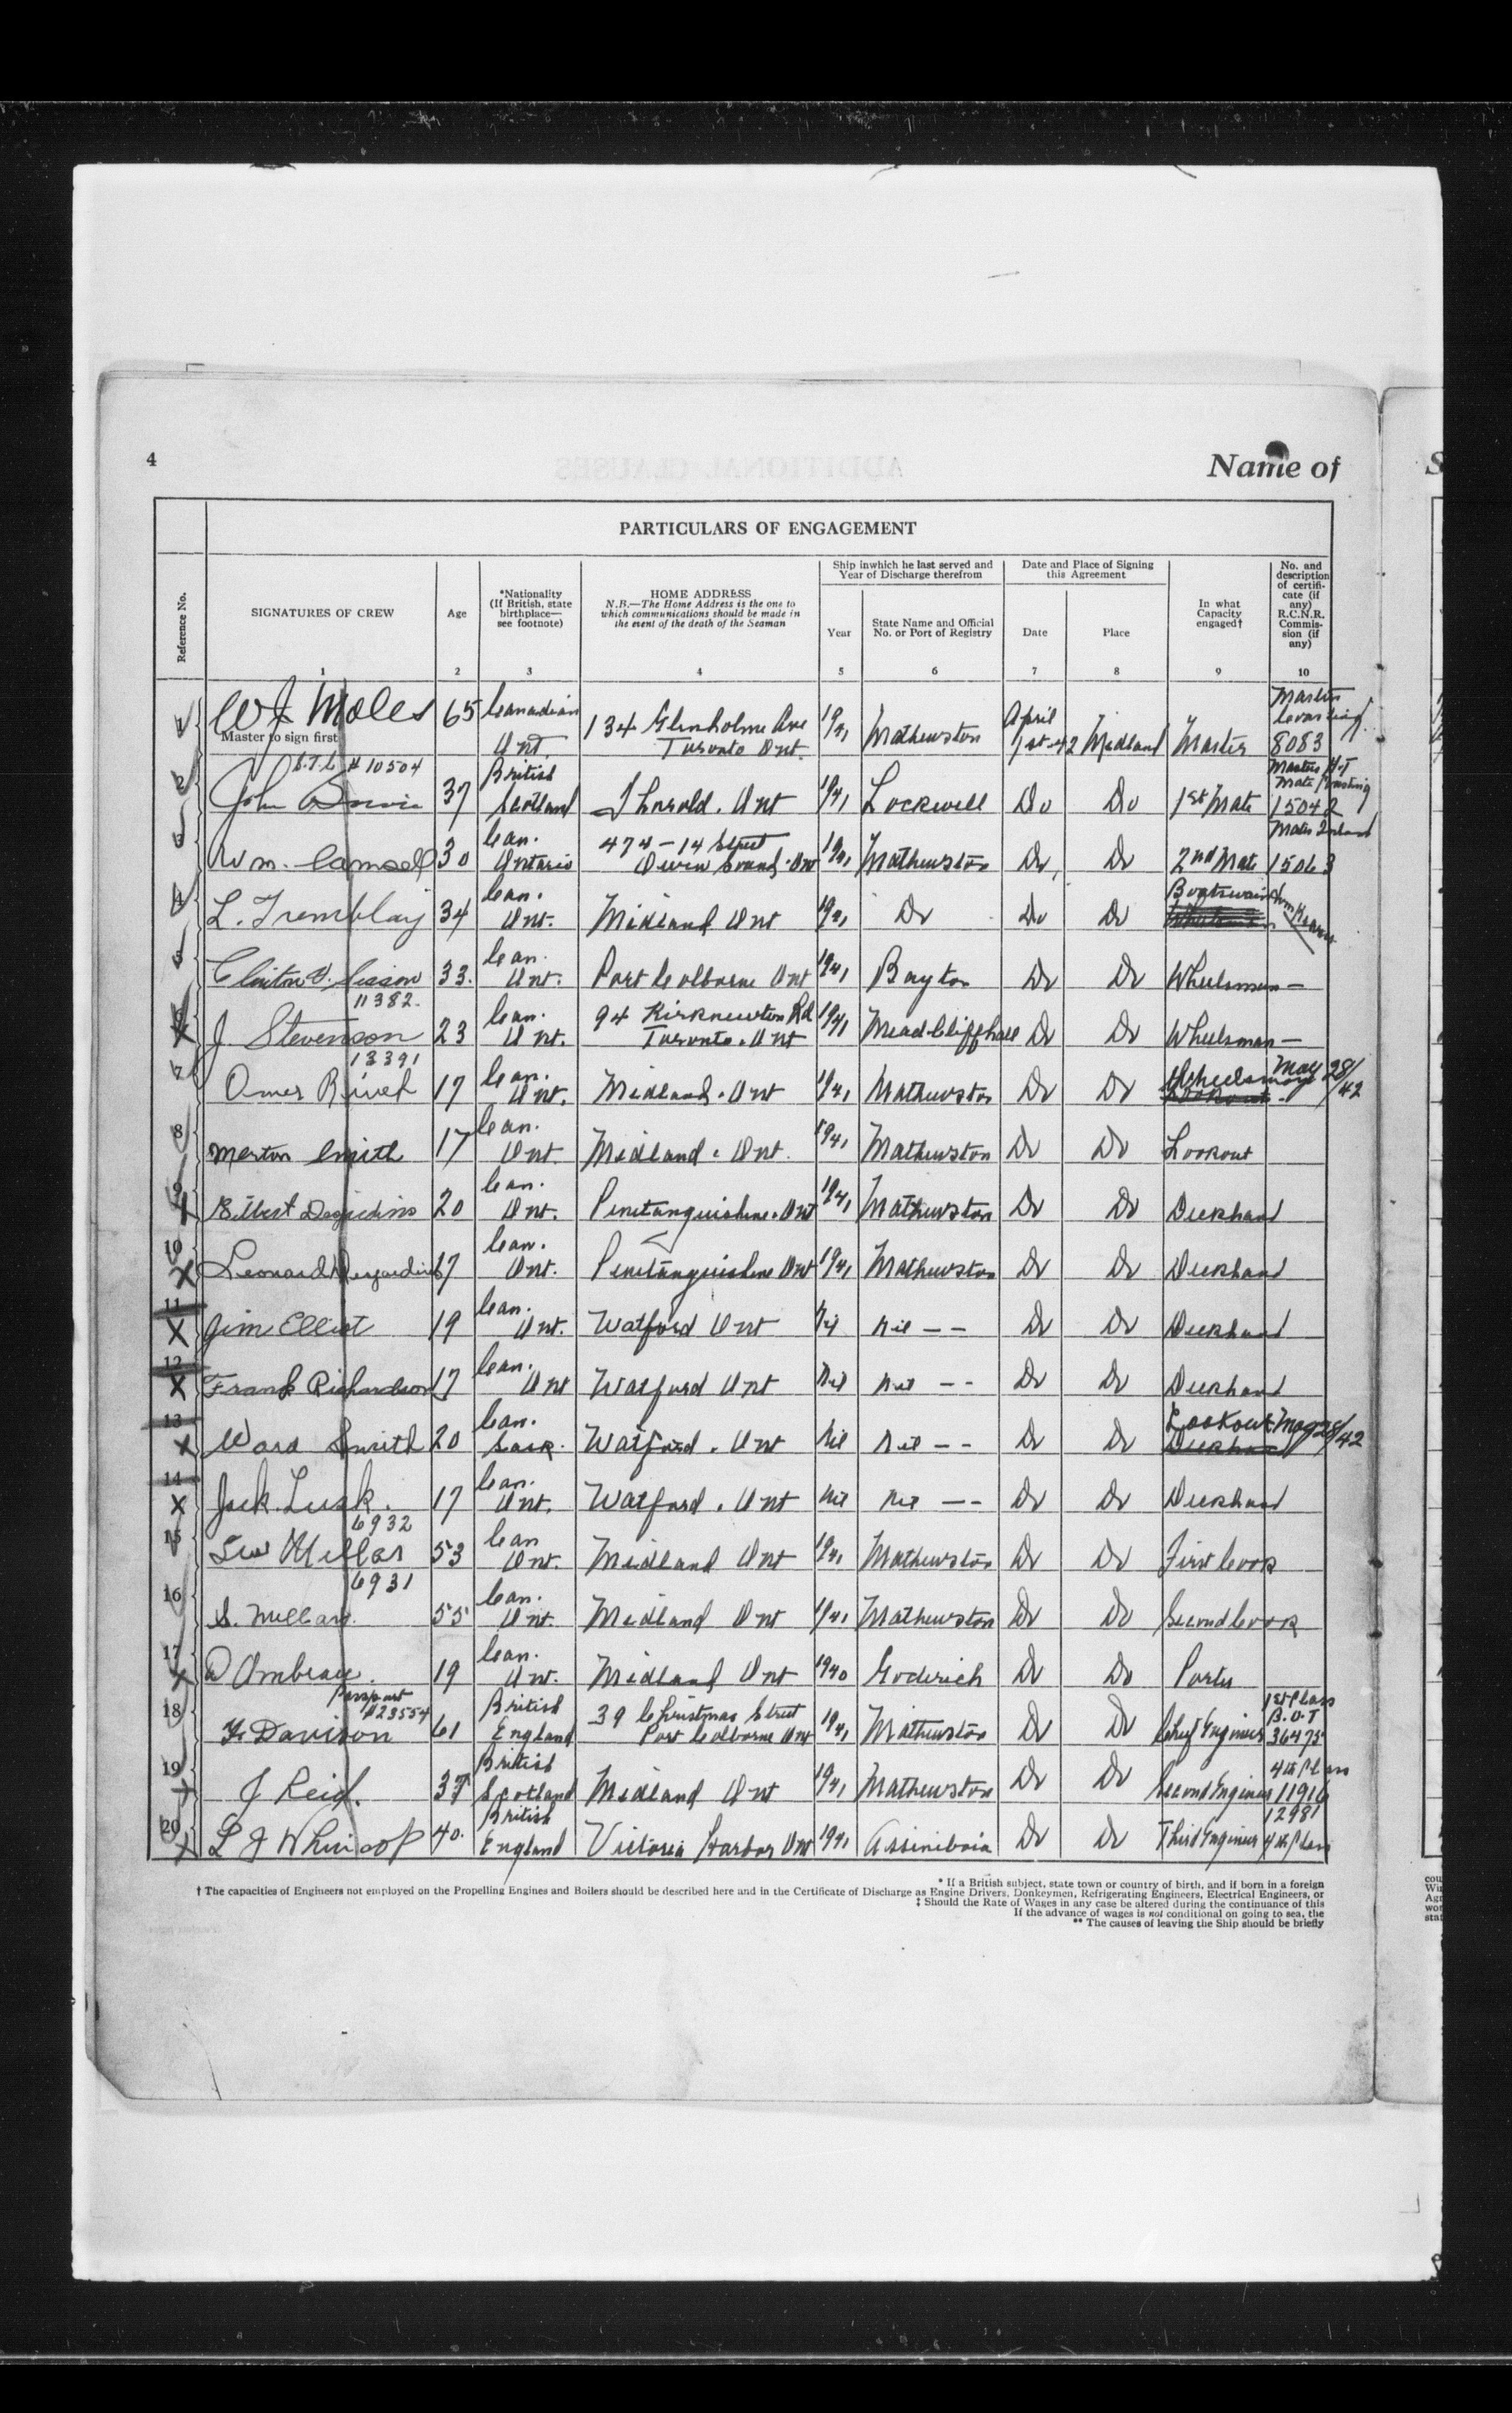 4
Name of
PARTICULARS OF ENGAGEMENT
Reference No.
SIGNATURES OF CREW
Age
*Nationality
(If British, state
birthplace—
see footnote)
HOME ADDRESS
N.B.—The Home Address is the one to
which communications should be made in
the event of the death of the Seaman
Ship inwhich he last served and
Year of Discharge therefrom
Year
State Name and Official
No. or Port of Registry
Date and Place of Signing
this Agreement
Date
Place
In what
Capacity
engaged†
No. and
description
of certifi-
cate (if
any)
R.C.N.R.
Commis-
sion (if
any)
1 2 3 4 5 6 7 8 9 10
1 W J Moles 65 Canadian Ont. 134 Glenholme Ave Toronto Ont. 1941 Mathewston April 1st-42 Midland Master Master 8083
Master to sign first
2 # 10504 John 37 British Scotland Thorold. Ont 1941 Lockwell Do Do 1st Mate 15042
3 Wm. Camsell 30 Can. Ontario 474 - 14 Street Owen Sound. Ont 1941 Mathewston Do Do 2nd Mate Mate Inland 15063
4 L. Tremblay 34 Can. Ont. Midland Ont 1941 Do Do Do Boatswain
5 Clinton Sisson 33. Can. Ont. Port Colborne Ont 1941 Bayton Do Do Wheelsman —
6 11382. J. Stevenson 23 Can. Ont. 94 Kirknewton Rd Toronto. Ont 1941 Meadcliffhall Do Do Wheelsman —
7 13391 Omer Rivet 17 Can. Ont. Midland. Ont 1941 Mathewston Do Do Wheelsman Lookout May 28/42
8 Merton Smith 17 Can. Ont. Midland. Ont. 1941 Mathewston Do Do Lookout
9 Desjardins 20 Can. Ont. Penetanguishene. Ont 1941 Mathewston Do Do Deckhand
10 Leonard Desjardins 17 Can. Ont. Penetanguishene Ont 1941 Mathewston Do Do Deckhand
11 Jim Elliot 19 Can. Ont. Watford Ont Nil Nil — — Do Do Deckhand
12 Frank Richardson 17 Can. Ont Watford Ont Nil Nil — — Do Do Deckhand
13 Ward Smith 20 Can. Sask. Watford. Ont Nil Nil — — Do Do Lookout May 28/42 Deckhand
14 Jack Lusk. 17 Can. Ont. Watford. Ont Nil Nil — — Do Do Deckhand
15 6932 Lew Millar 53 Can Ont. Midland Ont 1941 Mathewston Do Do First Cook
16 6931 S. Millar 55 Can. Ont. Midland Ont 1941 Mathewston Do Do Second Cook
17 D Ombrau 19 Can. Ont. Midland Ont 1940 Goderich Do Do Porter
18 Passport #23554 Davison 61 British England 39 Christmas Street Port Colborne Ont 1941 Mathewston Do Do Chief Engineer 1st Class B.O.T 36475
19 J Reid. 37 British Scotland Midland Ont 1941 Mathewston Do Do Second Engineer 4th Class 11916
20 L J Whincop 40. British England Victoria Harbor Ont 1941 Assiniboia Do Do Third Engineer 12981 4th Class
* If a British subject, state town or country of birth, and if born in a foreign
† The capacities of Engineers not employed on the Propelling Engines and Boilers should be described here and in the Certificate of Discharge as Engine Drivers, Donkeymen, Refrigerating Engineers, Electrical Engineers, or
‡ Should the Rate of Wages in any case be altered during the continuance of this
If the advance of wages is not conditional on going to sea, the
** The causes of leaving the Ship should be briefly